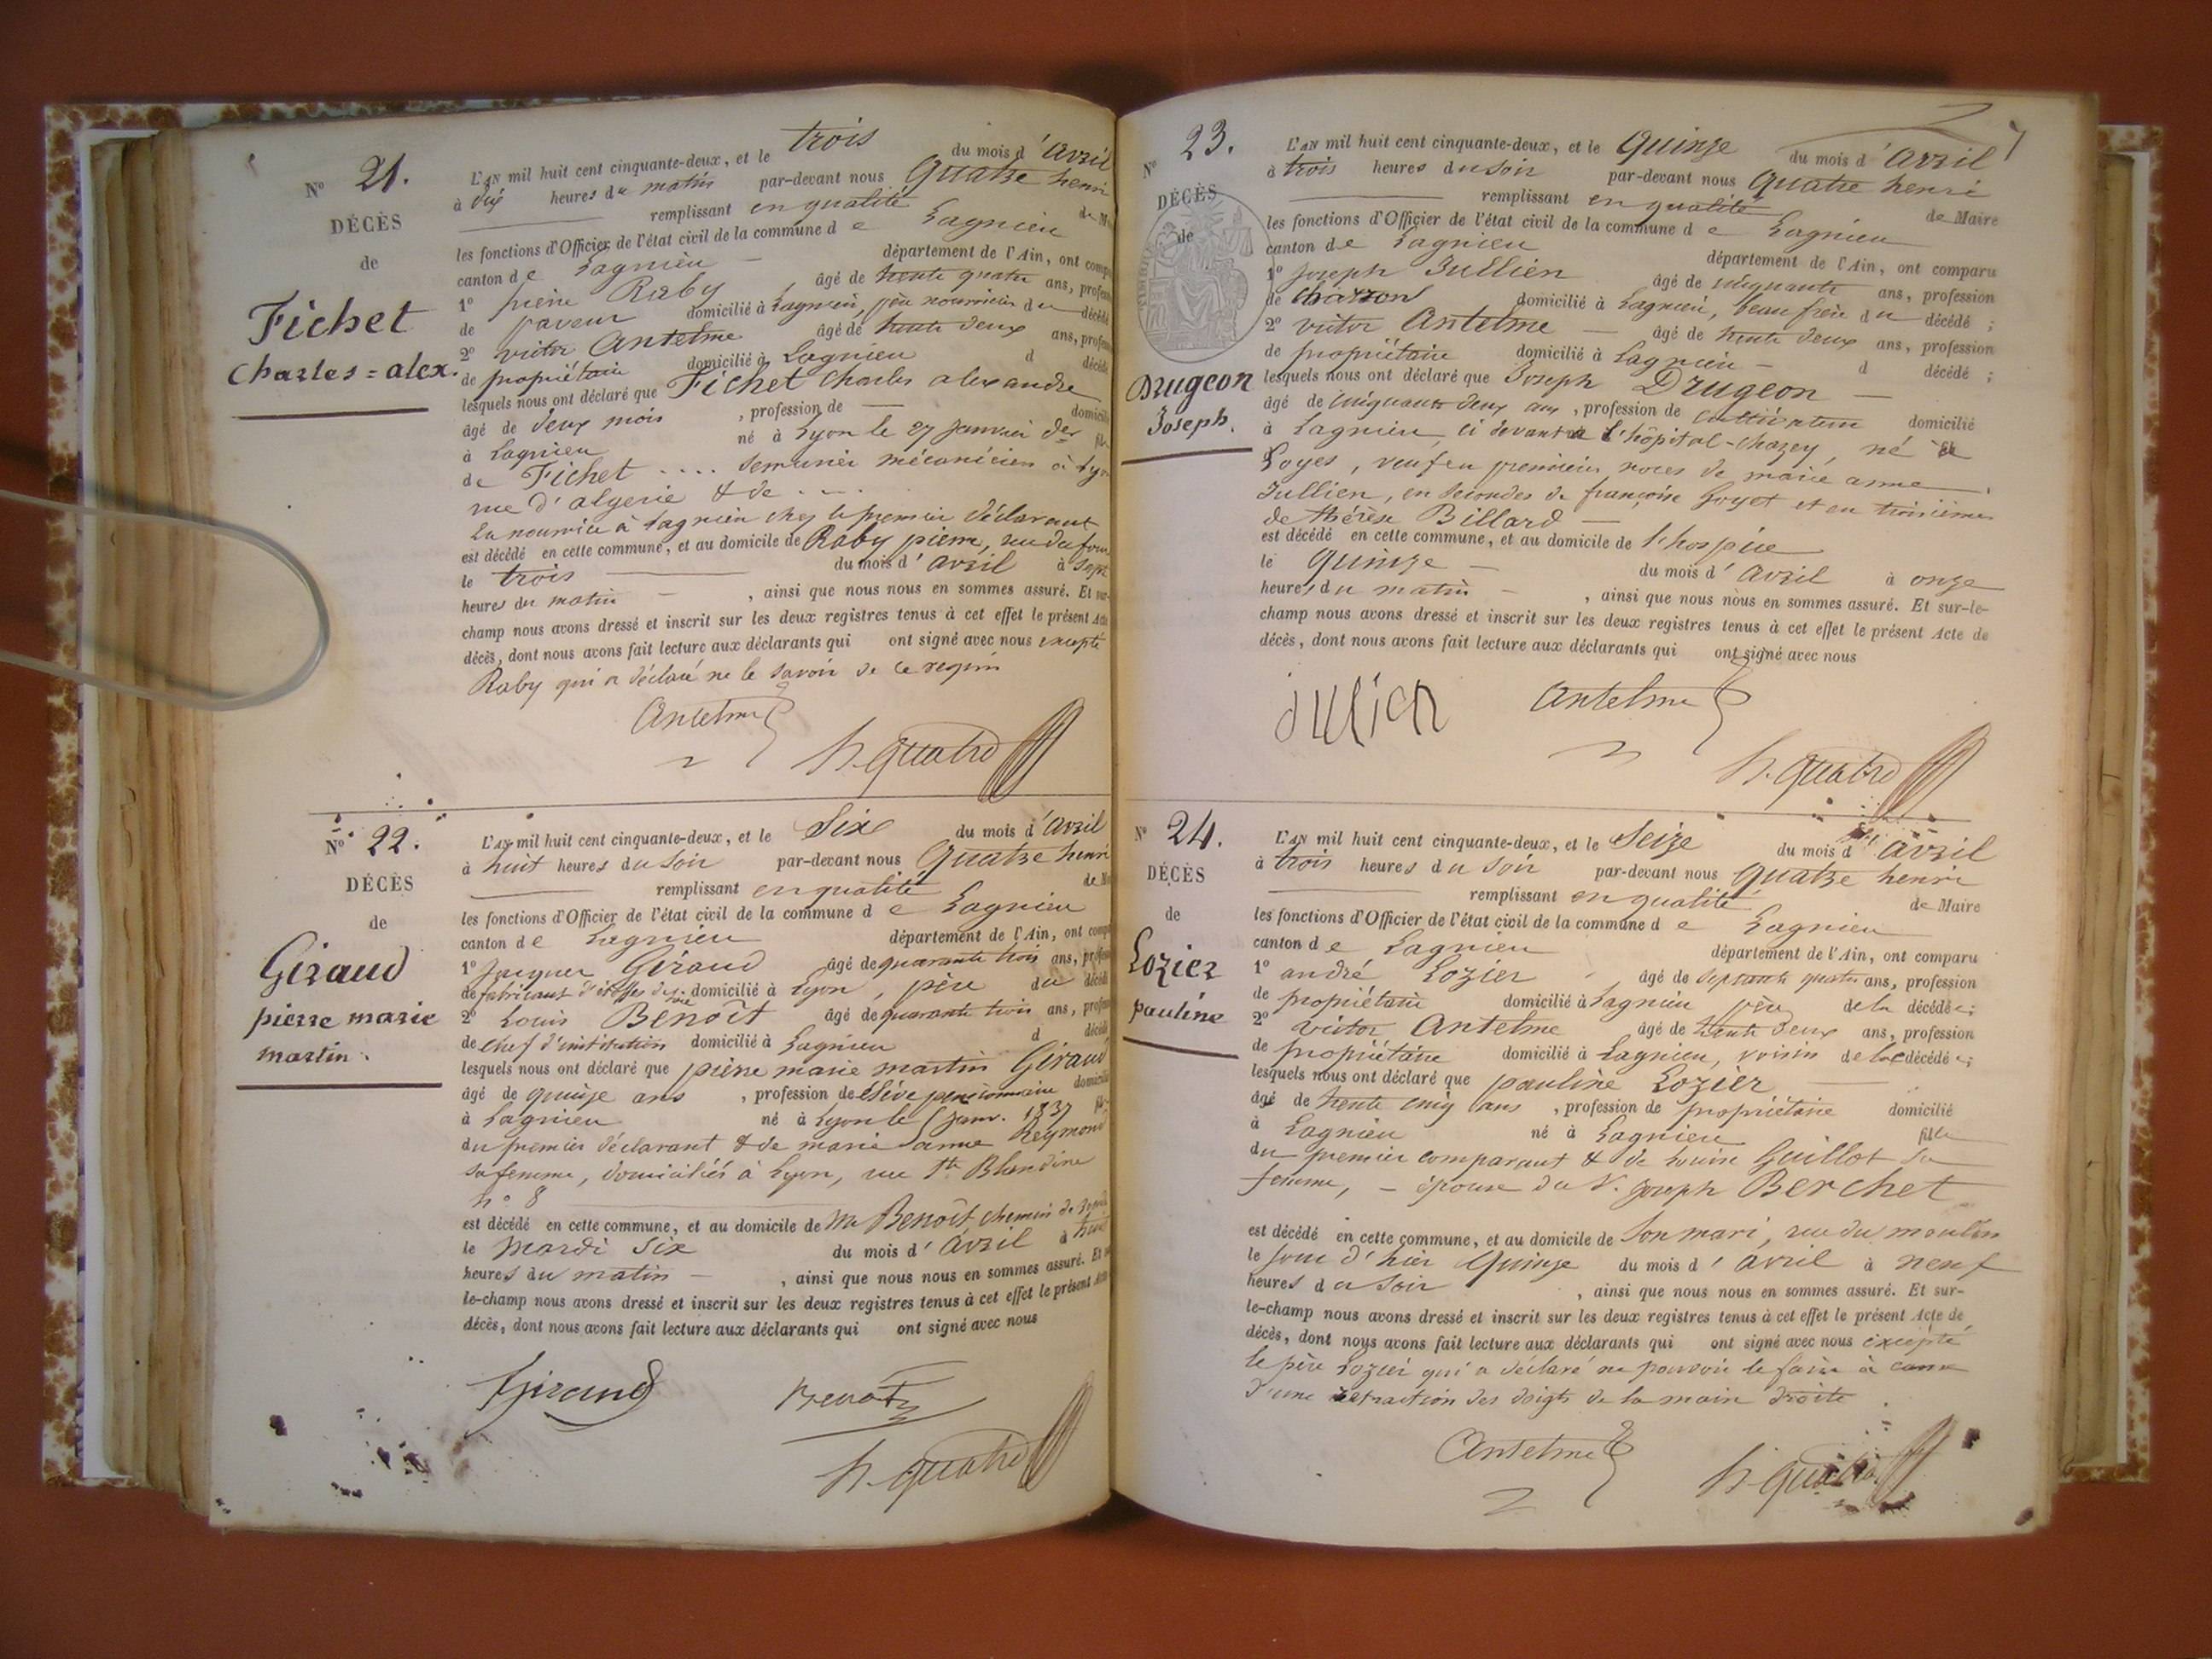 N° 21.
DÉCÈS
de
Fichet
Charles=alex.
L'AN mil huit cent cinquante-deux, et le trois du mois d'avril
à dix heures du matin par-devant nous Quatre henri
remplissant en qualité de M
les fonctions d'Officier de l'état civil de la commune de Lagnieu
canton de Lagnieu département de l'Ain, ont comp
1° pierre Raby âgé de trente quatre ans, profess
de paveur domicilié à Lagnieu, père nourricier du décédé
2° victor Antelme âgé de trente deux ans, profess
de propriétaire domicilié à Lagnieu d décédé
lesquels nous ont déclaré que Fichet Charles alexandre
âgé de deux mois, profession de — domicilié
à Lagnieu né à Lyon le 27 janvier der fils
de Fichet .... menuisier mécanicien à Lyon
rue d'algerie & de ....
En nourrice à Lagnieu chez le premier déclarant
est décédé en cette commune, et au domicile de Raby pierre, rue du four
le trois du mois d'avril à sept
heures du matin, ainsi que nous nous en sommes assuré. Et sur-
champ nous avons dressé et inscrit sur les deux registres tenus à cet effet le présent Acte
décès, dont nous avons fait lecture aux déclarants qui ont signé avec nous excepté
Raby qui a déclaré ne le savoir de ce requis
Antelme
h. quatre
N° 22.
DÉCÈS
de
Giraud
pierre marie
martin.
L'AN mil huit cent cinquante-deux, et le Six du mois d'avril
à huit heures du soir par-devant nous Quatre henri
remplissant en qualité de M
les fonctions d'Officier de l'état civil de la commune de Lagnieu
canton de Lagnieu département de l'Ain, ont comp
1° Jacques Giraud âgé de quarante trois ans, profess
de fabricant d'étoffes de soie domicilié à Lyon, père du décédé
2° Louis Benoit âgé de quarante trois ans, profess
de chef d'institution domicilié à Lagnieu d décédé
lesquels nous ont déclaré que pierre marie martin Giraud
âgé de quinze ans, profession de Elève pensionnaire domicilié
à Lagnieu né à Lyon le janv. 1837 fils
du premier déclarant & de marie anne Reymond
sa femme, domiciliés à Lyon, rue Ste Blandine
n° 8
est décédé en cette commune, et au domicile de Mr Benoit, chemin de
le mardi six du mois d'avril à huit
heures du matin, ainsi que nous nous en sommes assuré. Et
le-champ nous avons dressé et inscrit sur les deux registres tenus à cet effet le présent Acte
décès, dont nous avons fait lecture aux déclarants qui ont signé avec nous
Giraud
Benoit
h. quatre
N° 23.
DÉCÈS
de
Drugeon
Joseph.
L'AN mil huit cent cinquante-deux, et le Quinze du mois d'avril
à trois heures du soir par-devant nous Quatre henri
remplissant en qualité de Maire
les fonctions d'Officier de l'état civil de la commune de Lagnieu
canton de Lagnieu département de l'Ain, ont comparu
1° Joseph Jullien âgé de cinquante ans, profession
de charron domicilié à Lagnieu, beau frère du décédé ;
2° victor Antelme âgé de trente deux ans, profession
de propriétaire domicilié à Lagnieu d décédé ;
lesquels nous ont déclaré que Joseph Drugeon
âgé de cinquante deux ans, profession de cultivateur domicilié
à Lagnieu, ci devant à l'hôpital-Chazey, né à
Loyes, veuf en premieres noces de marie anne
Jullien, en secondes de françoise Goyet et en troisièmes
de thérèse Billard
est décédé en cette commune, et au domicile de l'hospice
le quinze du mois d'avril à onze
heures du matin, ainsi que nous nous en sommes assuré. Et sur-le-
champ nous avons dressé et inscrit sur les deux registres tenus à cet effet le présent Acte de
décès, dont nous avons fait lecture aux déclarants qui ont signé avec nous
Julien
Antelme
h. quatre
N° 24.
DÉCÈS
de
Lozier
pauline
L'AN mil huit cent cinquante-deux, et le Seize du mois d'avril
à trois heures du soir par-devant nous Quatre henri
remplissant en qualité de Maire
les fonctions d'Officier de l'état civil de la commune de Lagnieu
canton de Lagnieu département de l'Ain, ont comparu
1° andré Lozier âgé de septante quatre ans, profession
de propriétaire domicilié à Lagnieu père de la décédée ;
2° victor Antelme âgé de trente deux ans, profession
de propriétaire domicilié à Lagnieu, voisin de la décédée ;
lesquels nous ont déclaré que pauline Lozier
âgé de trente cinq ans, profession de propriétaire domicilié
à Lagnieu né à Lagnieu fille
du premier comparant & de Louise Guillot sa
femme, — épouse du S. Joseph Berchet
est décédé en cette commune, et au domicile de son mari, rue du moulin
le jour d'hier quinze du mois d'avril à neuf
heures du soir, ainsi que nous nous en sommes assuré. Et sur-
le-champ nous avons dressé et inscrit sur les deux registres tenus à cet effet le présent Acte de
décès, dont nous avons fait lecture aux déclarants qui ont signé avec nous excepté
le père Lozier qui a déclaré ne pouvoir le faire à cause
d'une retraction des doigts de la main droite
Antelme
h. quatre